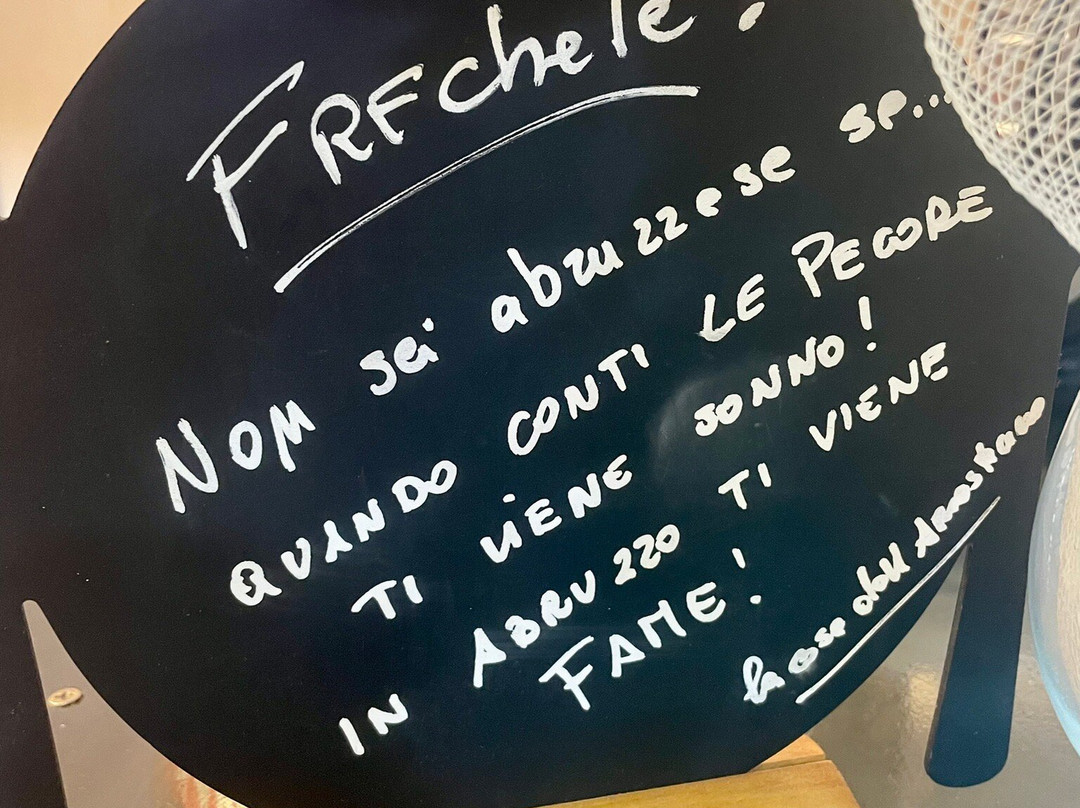 FREchete!
Nom sei abruzzese se...
QUANDO CONTI LE PECORE
TI VIENE SONNO!
IN ABRUZZO TI VIENE
FAME!
la casa dell'Arrosticino